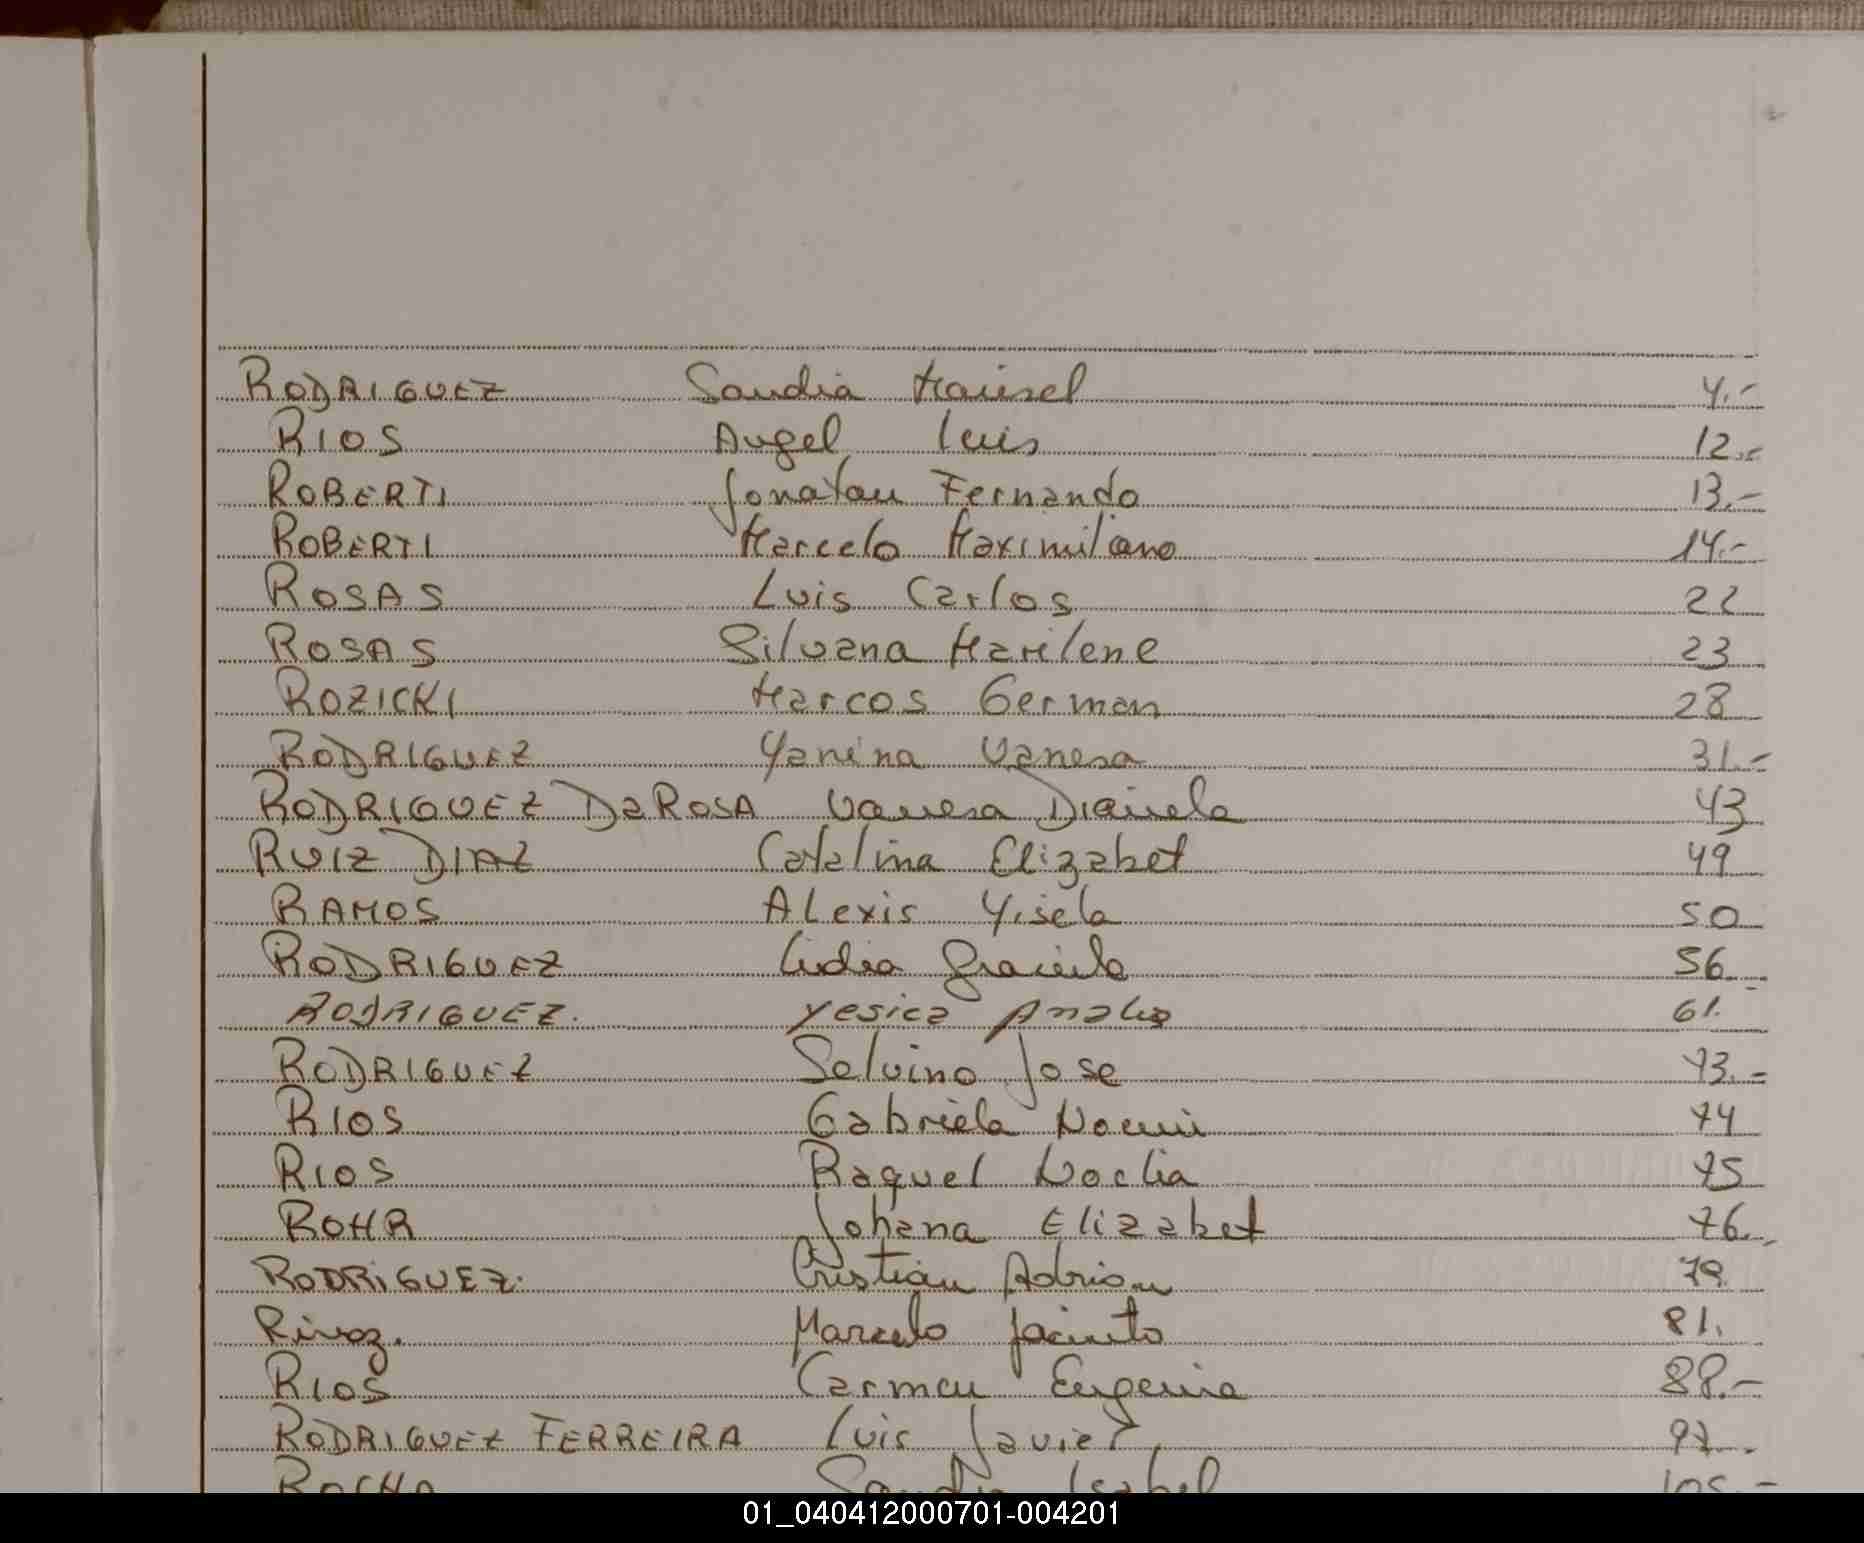 RODRIGUEZ Sandia Marisel 4.-
RIOS Angel Luis 12.-
ROBERTI Jonatan Fernando 13.-
ROBERTI Marcelo Maximiliano 14.-
ROSAS Luis Carlos 22
ROSAS Silvana Marilene 23
ROZICKI Marcos German 28
RODRIGUEZ Yanina Vanesa 31.-
RODRIGUEZ DaROSA Vanesa 43
RUIZ DIAZ Catalina Elizabet 49
RAMOS Alexis Yisela 50
RODRIGUEZ Lidia Graciela 56
RODRIGUEZ. Yesica Analia 61.
RODRIGUEZ Selvino Jose 73.-
RIOS Gabriela Noemi 74
RIOS Raquel Noelia 75
ROHR Johana Elizabet 76.
RODRiGUEZ. Cristian Adrian 79
Marcelo Jacinto 81.
RIOS Carmen Eugenia 88.-
RODRIGUEZ FERREIRA Luis Javier 97.-
ROCHA Isabel 105.-
01_040412000701-004201